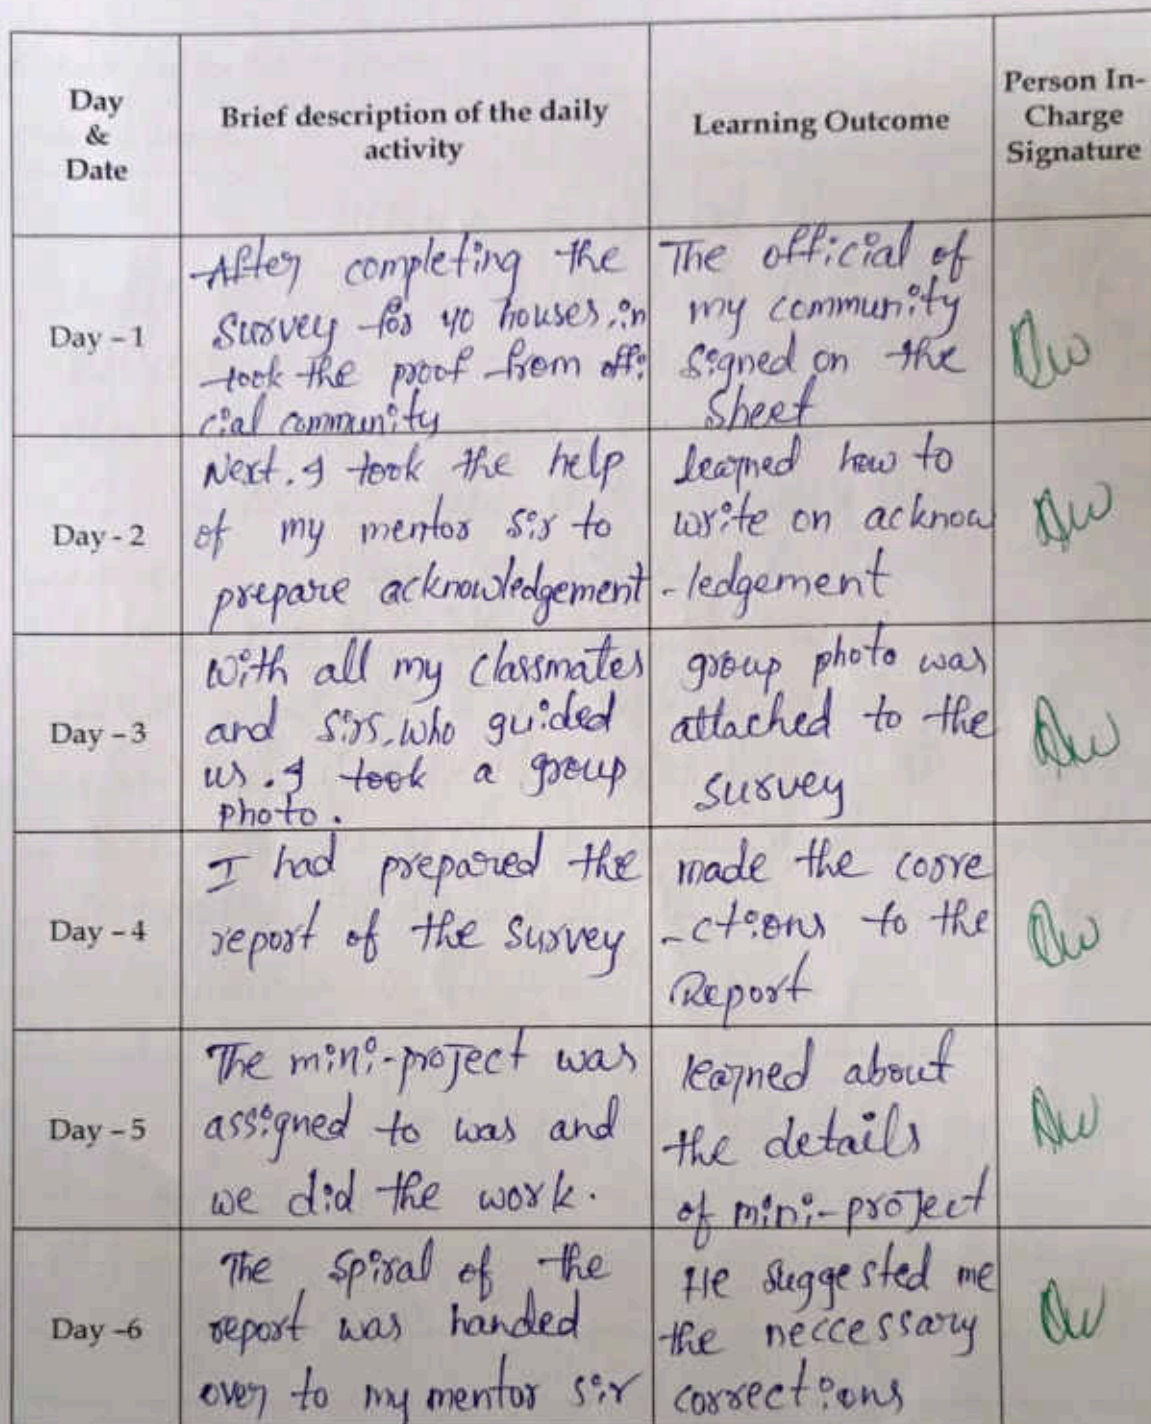 Day
&
Date
Brief description of the daily
activity
Learning Outcome
Person In-
Charge
Signature
Day – 1
After completing the
Survey for 40 houses, in
took the proof from offi
cial community
The official of
my community
signed on the
Sheet
Day - 2
Next. I took the help
of my mentor sir to
prepare acknowledgement
learned how to
write on acknow
-ledgement
Day – 3
With all my classmates
and sirs, who guided
us. I took a group
photo.
group photo was
attached to the
survey
Day – 4
I had prepared the
report of the survey
made the corre
-ctions to the
Report
Day – 5
The mini-project was
assigned to was and
we did the work.
learned about
the details
of mini-project
Day –6
The spiral of the
report was handed
over to my mentor sir
He suggested me
the neccessary
corrections